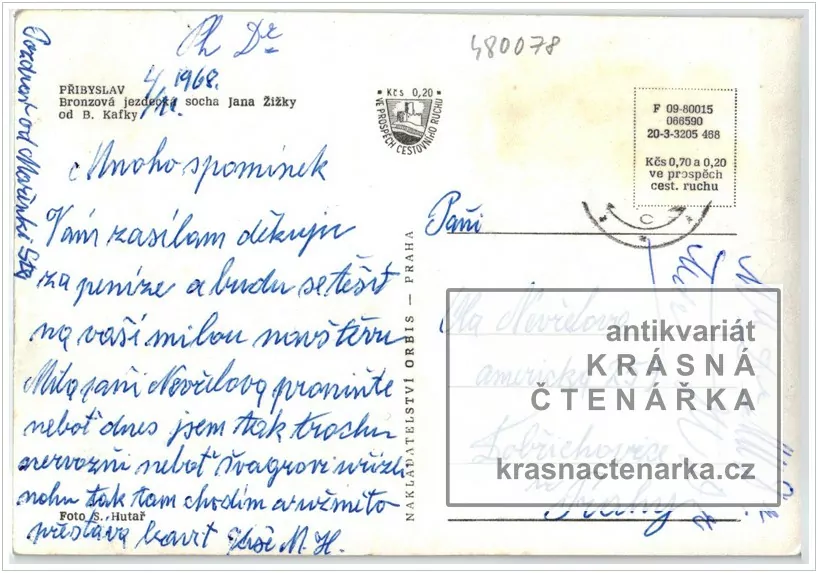 Ph Dr
480078
4/ 1968.
PŘIBYSLAV
Bronzová jezdecká socha Jana Žižky
od B. Kafky
Kčs 0,20
VE PROSPĚCH CESTOVNÍHO RUCHU
F 09-80015
066590
20-3-3205 468
Kčs 0,70 a 0,20
ve prospěch
cest. ruchu
Pozdrav od Mařenki
Mnoho spomínek
Vám zasílam děkuji
za peníze a budu se těšit
na vaší milou navštěvu
Milá paní Nevřelova promiňte
neboť dnes jsem tak trochu
nervozní neboť švagrovi uřízli
nohu tak tam chodím a už mě to
přestává bavit M. H.
Foto S. Hutař
NAKLADATELSTVÍ ORBIS — PRAHA
Paní
Nevřelova
americká 251
Dobřichovice
u Prahy
antikvariát
KRÁSNÁ
ČTENÁŘKA
krasnactenarka.cz